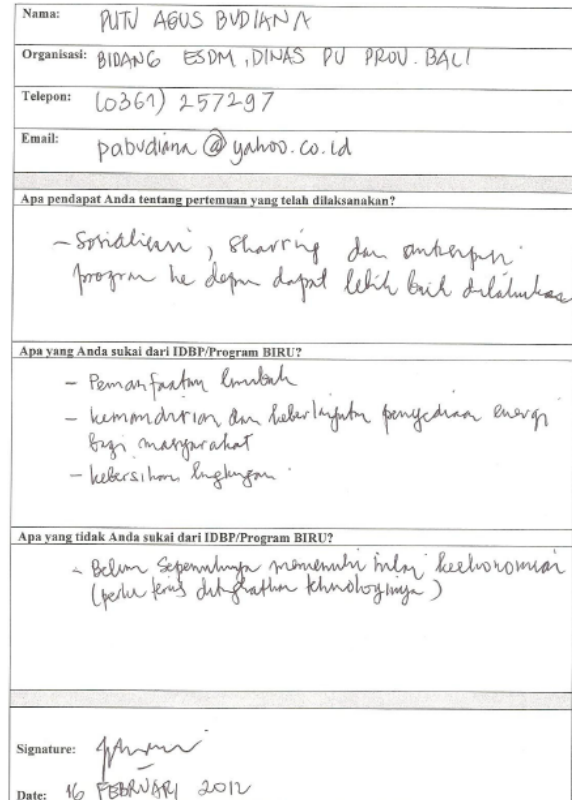 Nama: PUTU AGUS BUDIANA
Organisasi: BIDANG ESDM, DINAS PU PROV. BALI
Telepon: (0361) 257297
Email: pabudiana@yahoo.co.id
Apa pendapat Anda tentang pertemuan yang telah dilaksanakan?
- Sosialisasi, sharring dan
program ke depan dapat lebih baik dilakukan
Apa yang Anda sukai dari IDBP/Program BIRU?
- Pemanfaatan limbah
- kemandirian dan keberlanjutan penyediaan energi
bagi masyarakat
- kebersihan lingkungan.
Apa yang tidak Anda sukai dari IDBP/Program BIRU?
- Belum sepenuhnya memenuhi nilai keekonomian
(perlu terus ditingkatkan tehnologinya)
Signature:
Date: 16 FEBRUARI 2012